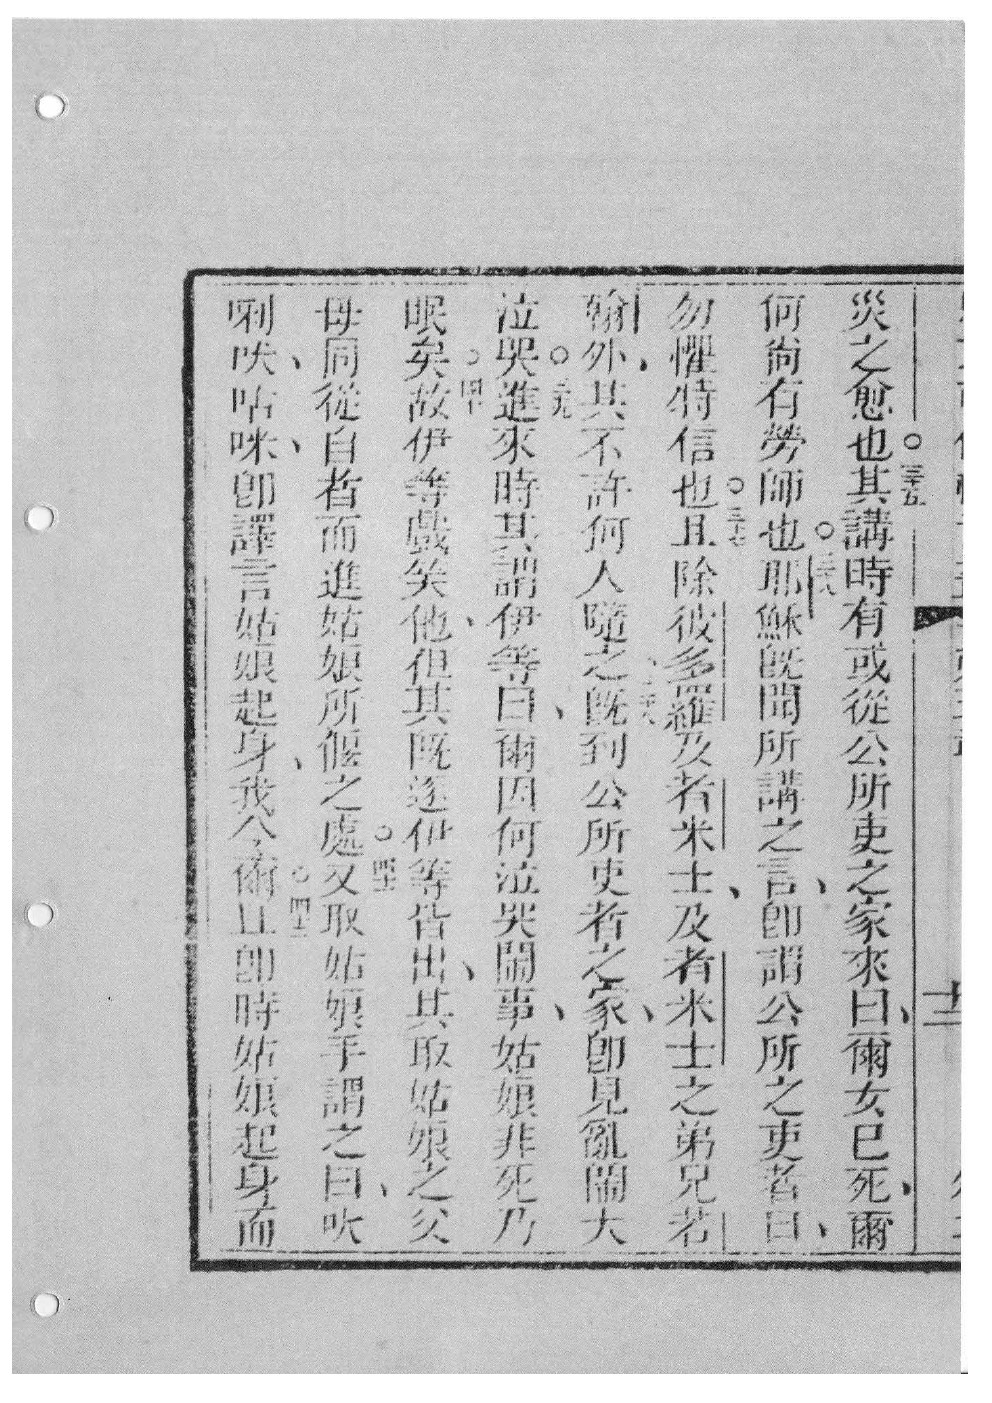 災之愈也○三十五其講時有或從公所吏之家來曰、爾女已死、爾
何尚有勞師也○三六耶穌既聞所講之言、即謂公所之吏者曰、
勿懼特信也○三十七且除彼多羅及者米士、及者米士之弟兄若
翰、外其不許何人隨之○三八既到公所吏者之家、即見亂鬧大
泣哭○三九進來時其謂伊等曰、爾因何泣哭鬧事、姑娘非死乃
眠矣○四十故伊等戲笑他、但其既逐伊等皆出、其取姑娘之父
母同從自者而進姑娘所偃之處○四一又取姑娘手謂之曰、吠
唎吠、咕咪、即譯言姑娘起身、我令爾○四二且即時姑娘起身而
十二